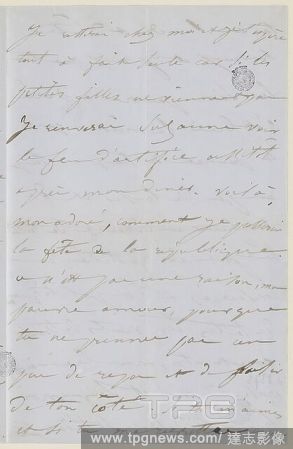 Je
tout à fait seule car si les
petites filles ne viennent pas
Je renverrai Suzanne voir
le feu d'artifice aussitôt
après mon dîner. Voilà,
mon adoré, comment je
la fête de la république
ce n'est pas une raison, mon
pauvre amour, pour que
tu ne prennes pas un
peu de repos et de
de ton côté
et si tu
TPG
www.tpgnews.com / 達志影像